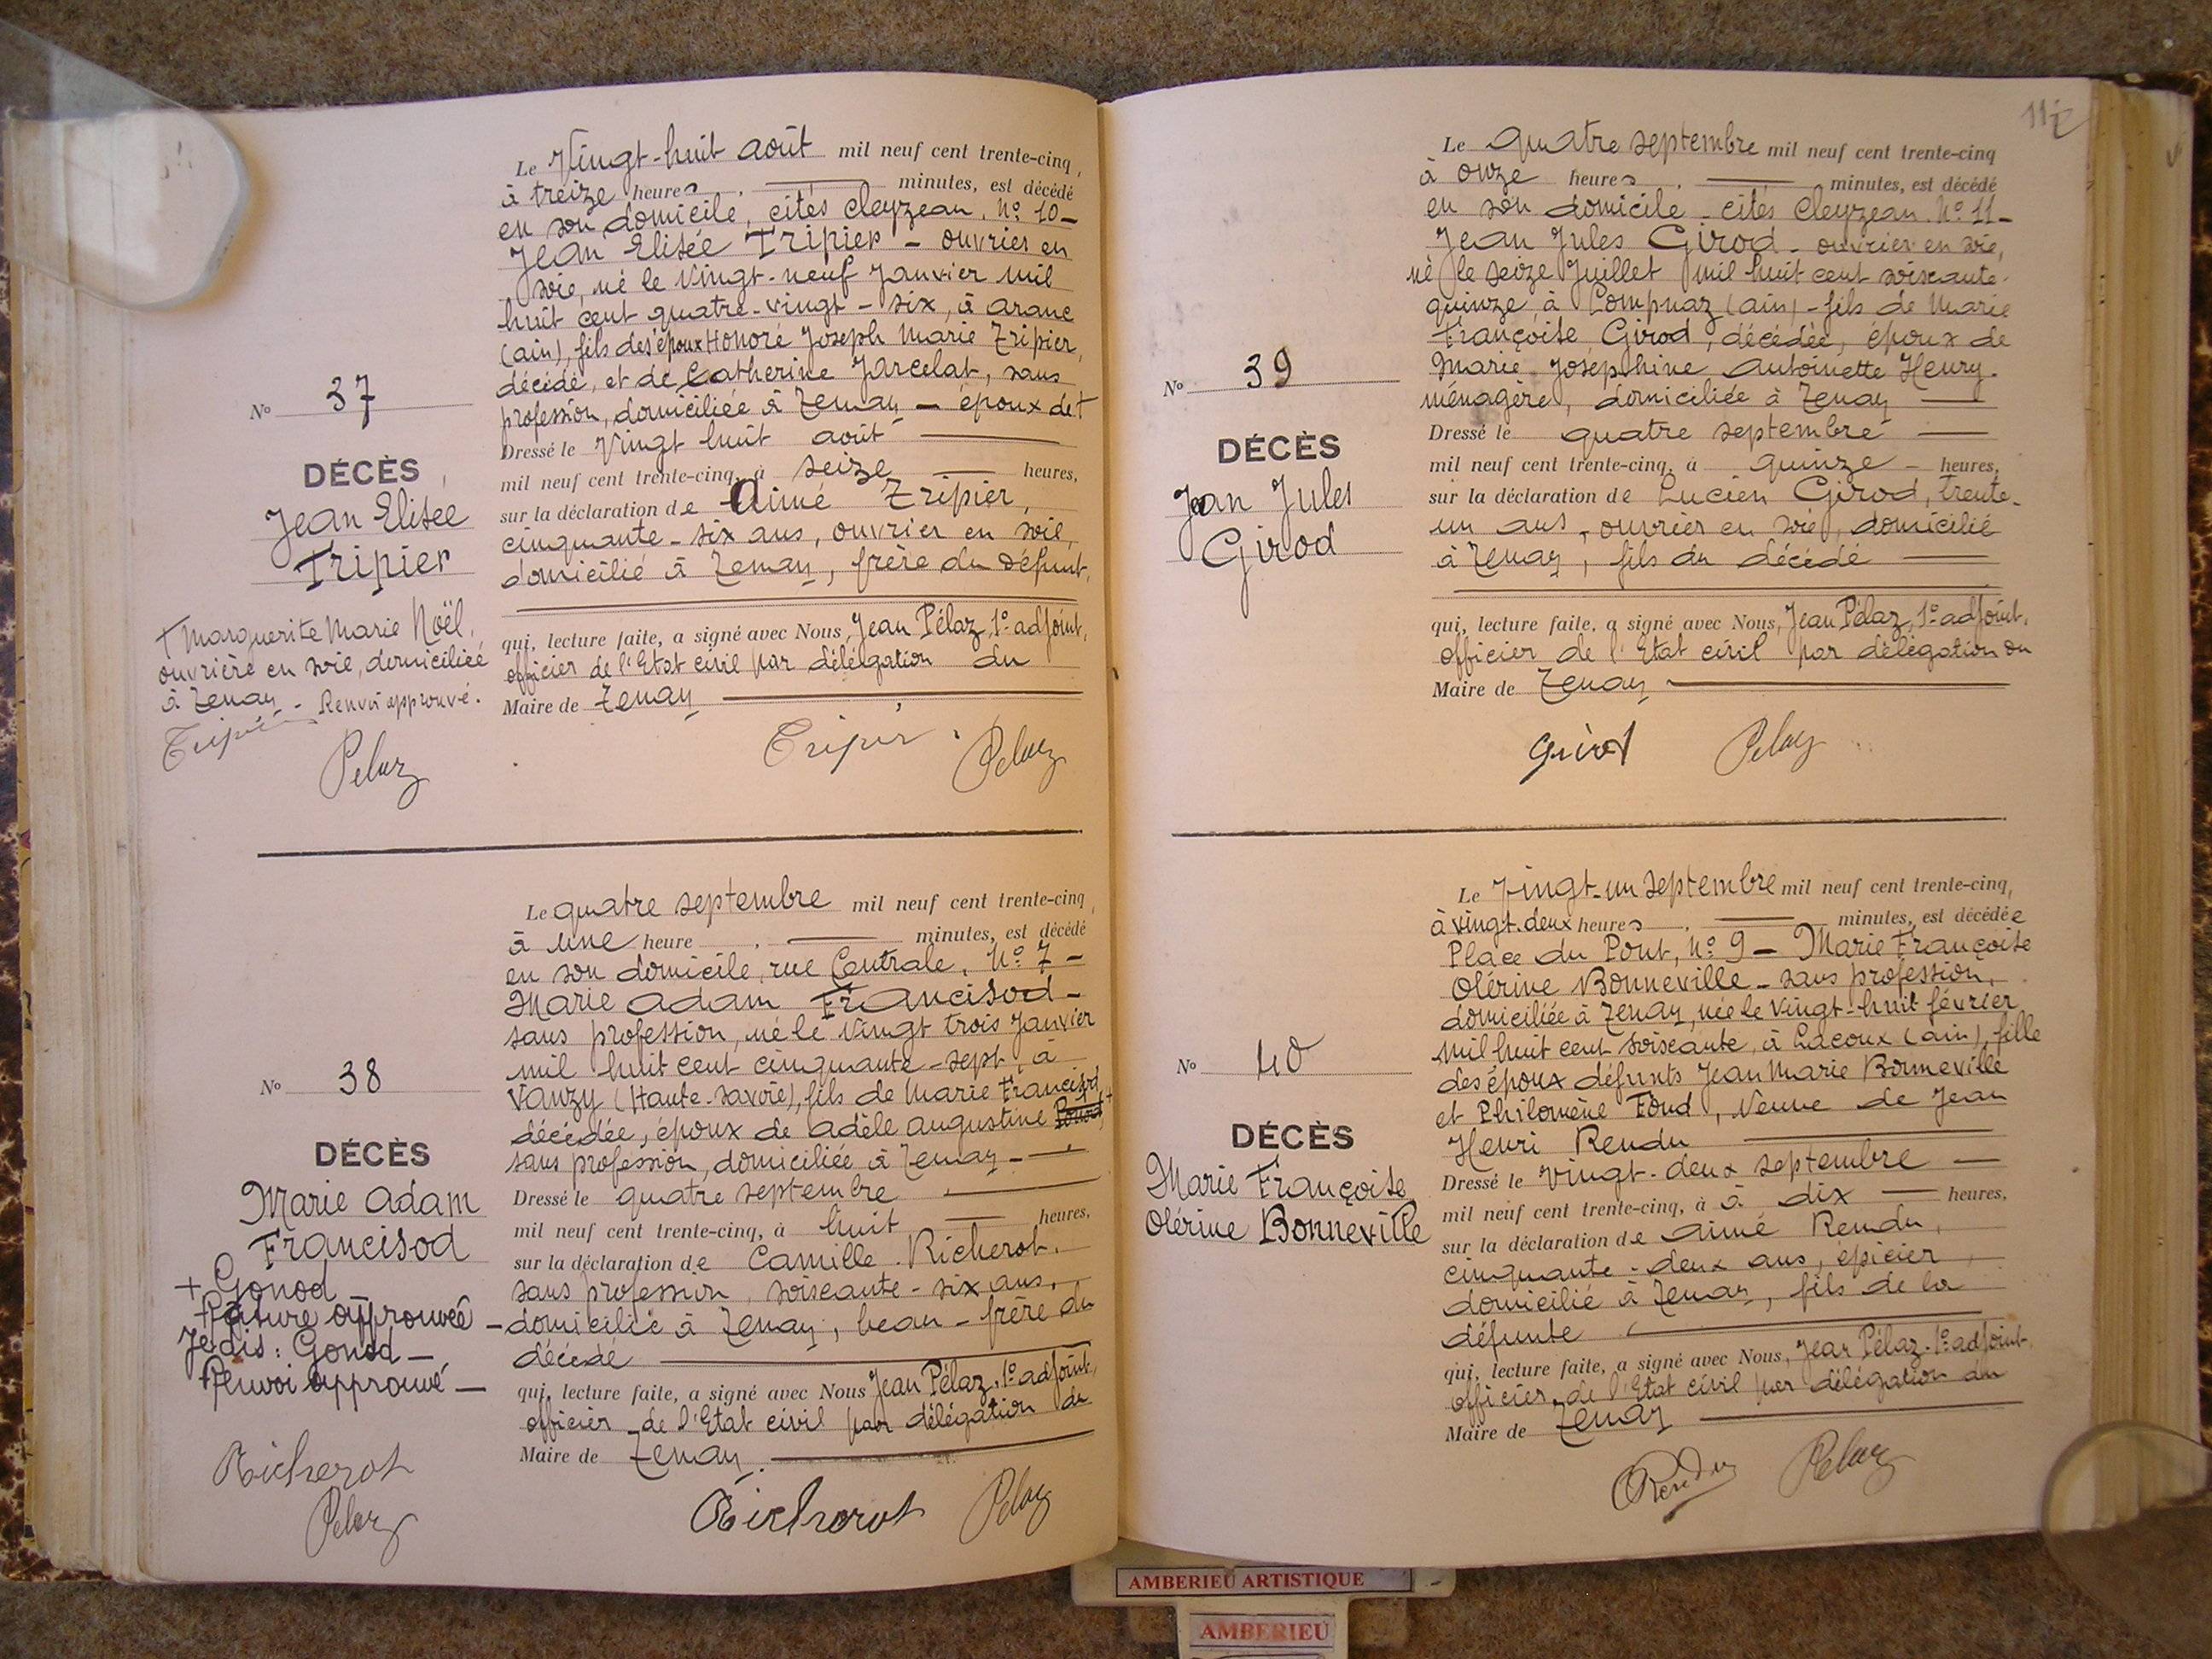 N° 37
DÉCÈS
Jean Elisée
Tripier
† Marguerite Marie Noël,
ouvrière en soie, domiciliée
à Tenay - Renvoi approuvé.
Tripier
Pelaz
Le Vingt-huit août mil neuf cent trente-cinq,
à treize heures, minutes, est décédé
en son domicile, cités Cleyzean, N° 10 -
Jean Elisée Tripier - ouvrier en
soie, né le vingt-neuf Janvier mil
huit cent quatre-vingt-six, à Aranc
(Ain), fils des époux Honoré Joseph Marie Tripier,
décédé, et de Catherine Jarcelat, sans
profession, domiciliée à Tenay - époux de †
Dressé le Vingt huit août
mil neuf cent trente-cinq, à seize heures,
sur la déclaration de Aimé Tripier,
cinquante-six ans, ouvrier en soie,
domicilié à Tenay, frère du défunt,
qui, lecture faite, a signé avec Nous, Jean Pélaz, 1° adjoint,
officier de l'Etat civil par délégation du
Maire de Tenay
Tripier Pelaz
N° 38
DÉCÈS
Marie Adam
Francisod
+ Gonod
+ Rature approuvée -
Je dis : Gonod -
Renvoi approuvé -
Richerot
Pelaz
Le quatre septembre mil neuf cent trente-cinq,
à une heure, minutes, est décédé
en son domicile, rue Centrale, N° 7 -
Marie Adam Francisod -
sans profession, né le vingt trois Janvier
mil huit cent cinquante-sept, à
Vanzy (Haute-Savoie), fils de Marie Francisod,
décédée, époux de Adèle Augustine +
sans profession, domiciliée à Tenay -
Dressé le quatre septembre
mil neuf cent trente-cinq, à huit heures,
sur la déclaration de Camille Richerot,
sans profession, soixante-six ans,
domicilié à Tenay, beau-frère du
décédé
qui, lecture faite, a signé avec Nous Jean Pélaz, 1° adjoint,
officier de l'Etat civil par délégation du
Maire de Tenay
Richerot Pelaz
N° 39
DÉCÈS
Jean Jules
Girod
Le quatre septembre mil neuf cent trente-cinq
à onze heures, minutes, est décédé
en son domicile - cités Cleyzean. N° 11 -
Jean Jules Girod - ouvrier en soie,
né le seize Juillet mil huit cent soixante-
quinze, à Lompnaz (Ain) - fils de Marie
Françoise Girod, décédée, époux de
Marie Joséphine Antoinette Henry -
ménagère, domiciliée à Tenay
Dressé le quatre septembre
mil neuf cent trente-cinq, à quinze heures,
sur la déclaration de Lucien Girod, trente-
un ans, ouvrier en soie, domicilié
à Tenay, fils du décédé
qui, lecture faite, a signé avec Nous, Jean Pélaz, 1° adjoint,
officier de l'Etat civil par délégation du
Maire de Tenay
Girod Pelaz
N° 40
DÉCÈS
Marie Françoise
Olérine Bonneville
Le Vingt-un septembre mil neuf cent trente-cinq,
à vingt-deux heures, minutes, est décédée
Place du Pont, N° 9 - Marie Françoise
Olérine Bonneville - sans profession,
domiciliée à Tenay, née le vingt-huit février
mil huit cent soixante, à Lacoux (Ain), fille
des époux défunts Jean Marie Bonneville
et Philomène Fond, veuve de Jean
Henri Rendu
Dressé le vingt-deux septembre
mil neuf cent trente-cinq, à à dix heures,
sur la déclaration de Aimé Rendu,
cinquante-deux ans, épicier,
domicilié à Tenay, fils de la
défunte
qui, lecture faite, a signé avec Nous, Jean Pélaz, 1° adjoint,
officier de l'Etat civil par délégation du
Maire de Tenay
Rendu Pelaz
AMBERIEU ARTISTIQUE
AMBERIEU